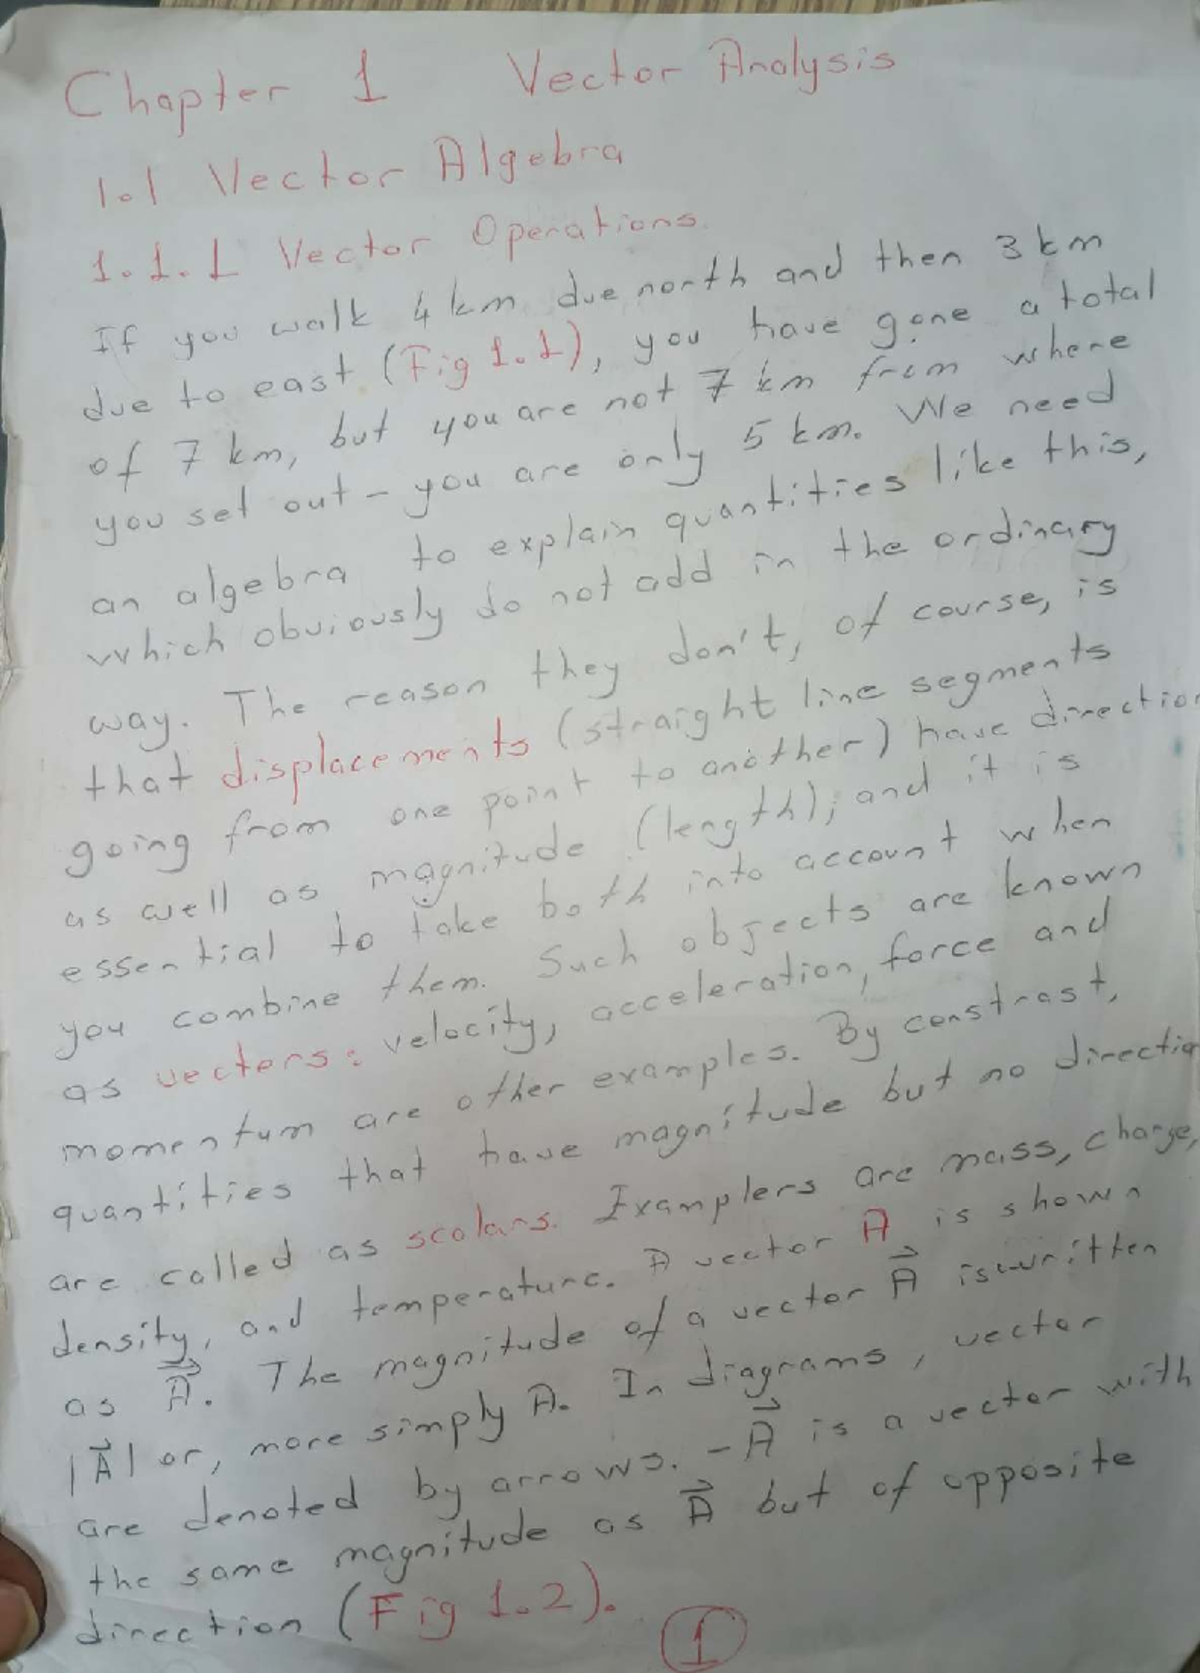 Chapter 1 Vector Analysis
1.1 Vector Algebra
1.1.1 Vector Operations.
If you walk 4 km due north and then 3 km
due to east (Fig 1.1), you have gone a total
of 7 km, but you are not 7 km from where
you set out - you are only 5 km. We need
an algebra to explain quantities like this,
which obviously do not add in the ordinary
way. The reason they don't, of course, is
that displacements (straight line segments
going from one point to another) have direction
as well as magnitude (length), and it is
essential to take both into account when
you combine them. Such objects are known
as vectors: velocity, acceleration, force and
momentum are other examples. By constrast,
quantities that have magnitude but no directio
are called as scalars. Examplers are mass, charge,
density, and temperature. A vector A is shown
as A⃗. The magnitude of a vector A⃗ is written
|A⃗| or, more simply A. In diagrams, vector
are denoted by arrows. -A⃗ is a vector with
the same magnitude as A⃗ but of opposite
direction (Fig 1.2).
1